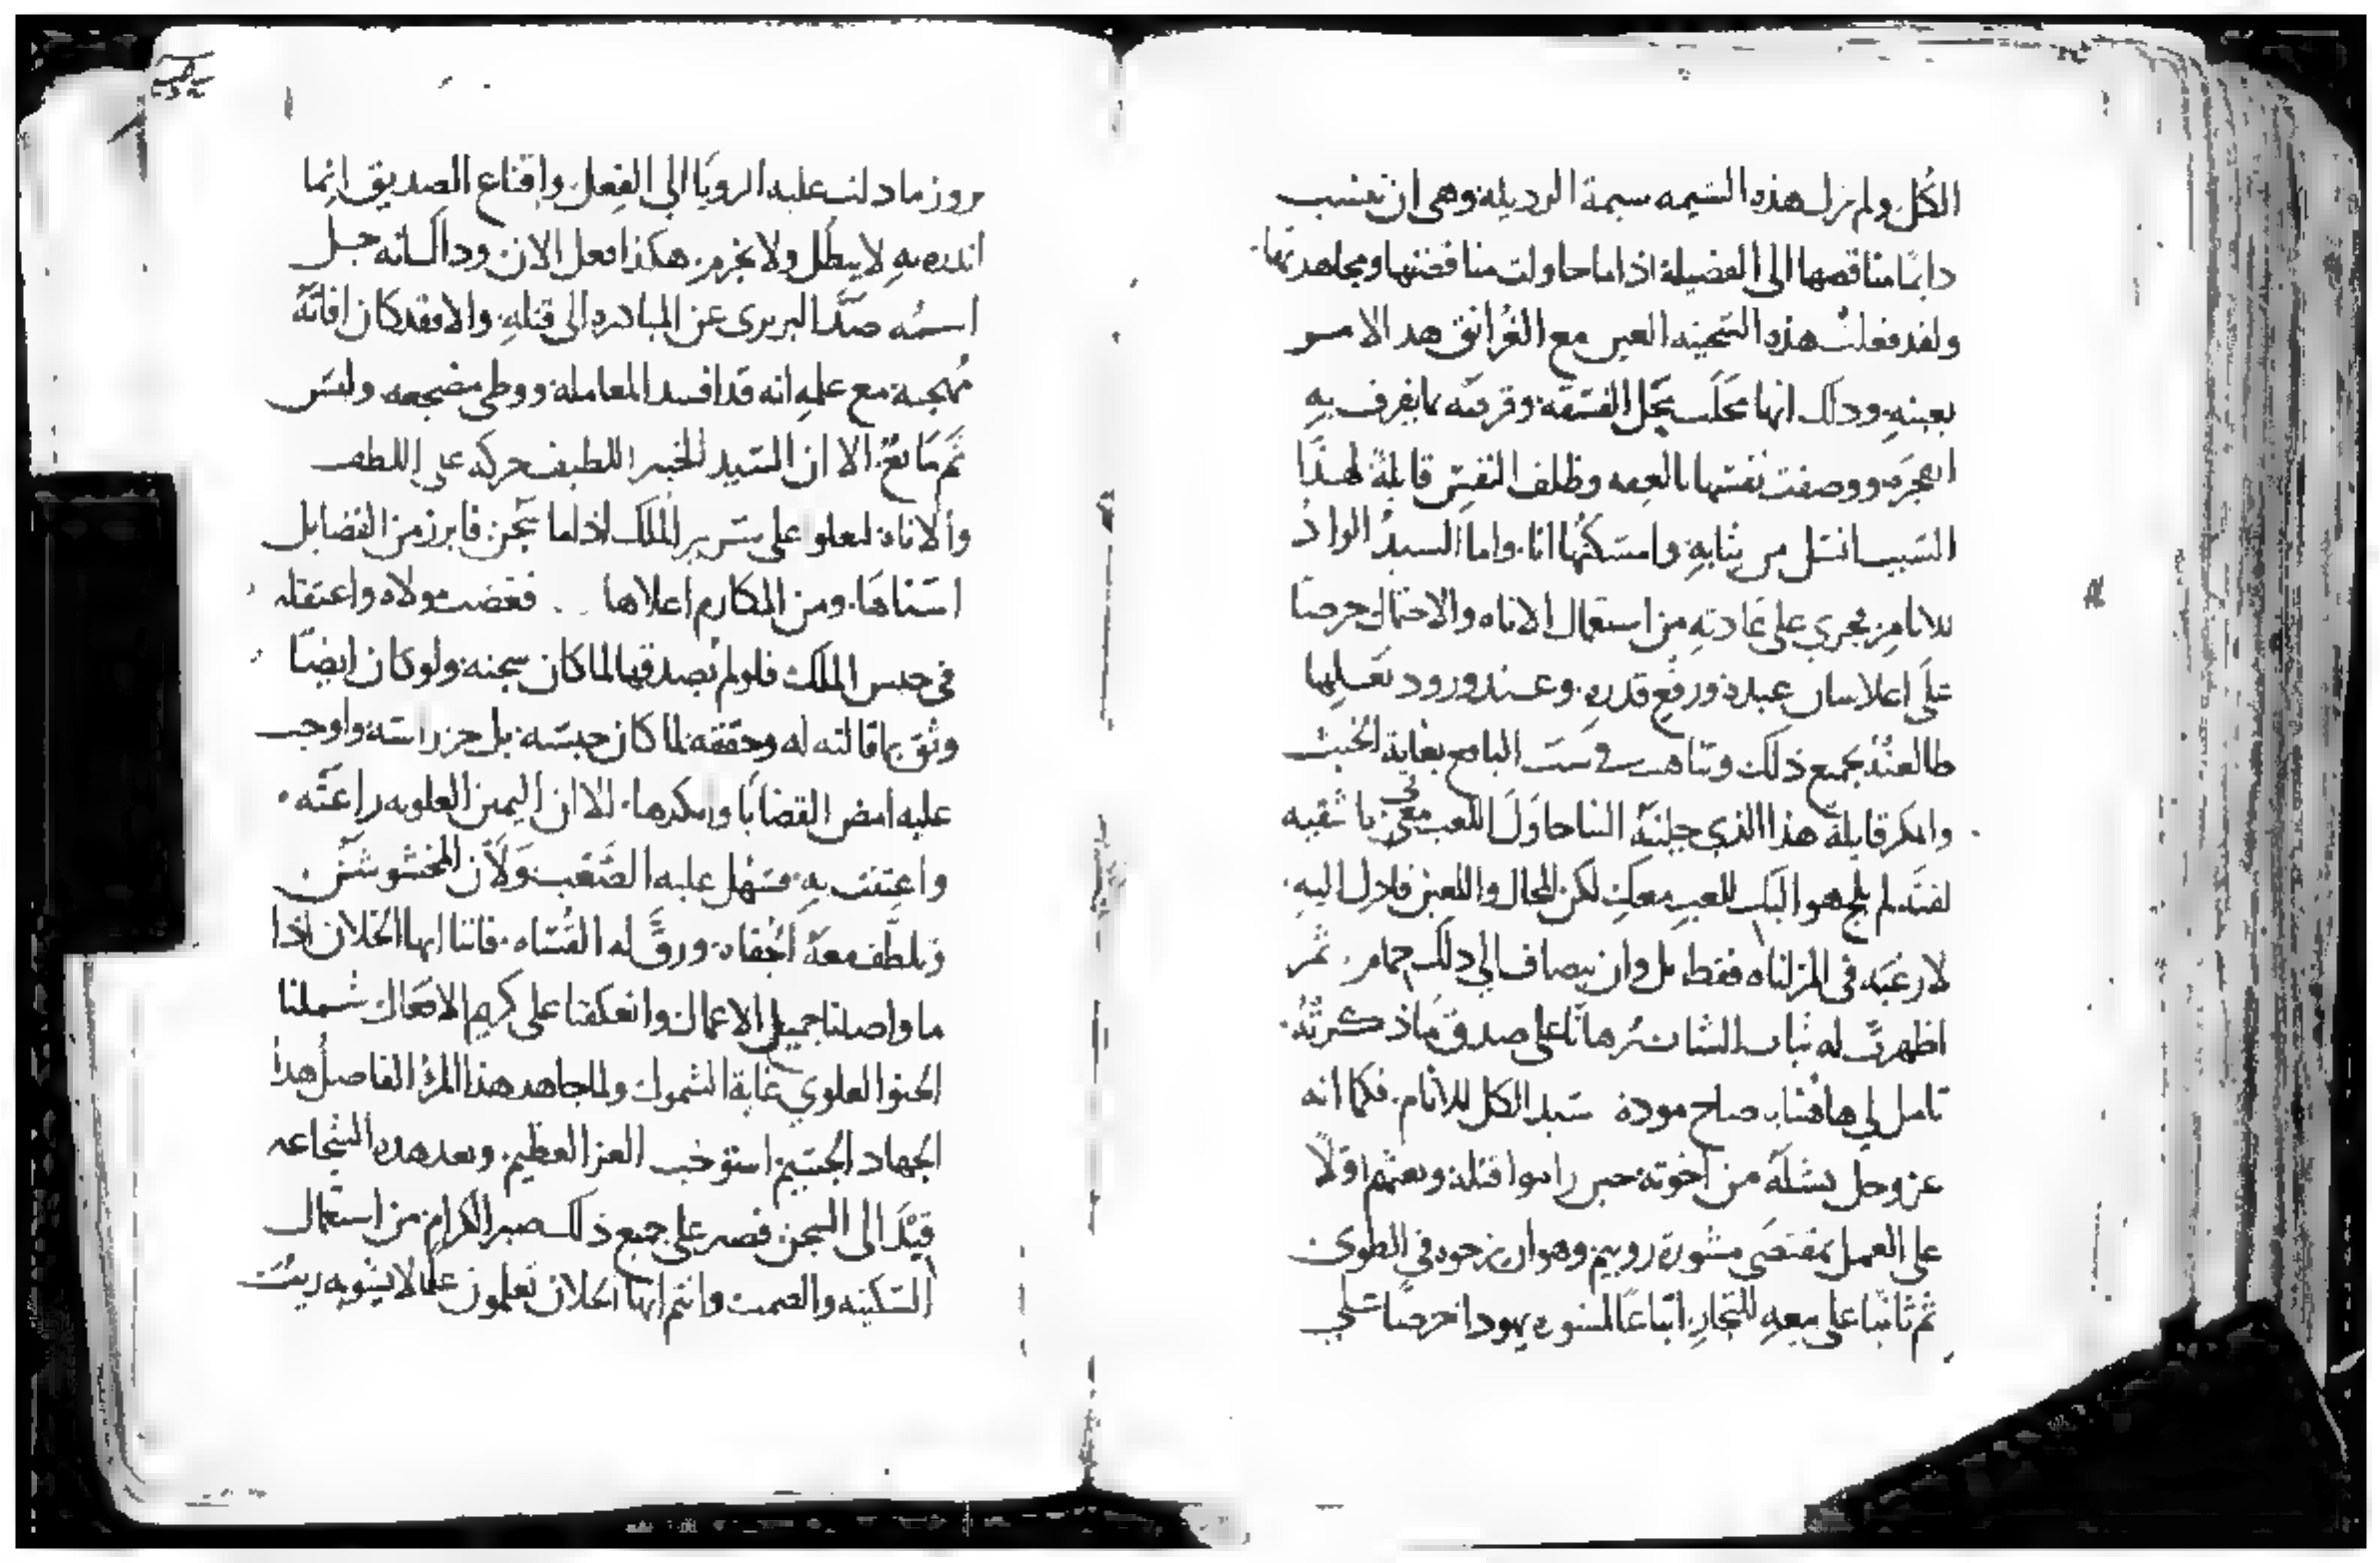 الكل ولم تزل هذه الشيمه سيمة الرديله وهى ان تنسب
دايمًا مناقصها الى الفضيلة اذا ما حاولت مناقضتها ومجاهدتها
ولقد فعلت هذه مع هدا الامر
بعينهِ ودلك انها وقرفته بما يقرف بهِ
ووصفت نفسها بالعفه وظلف النفس قايلةً لهذا
السبب انسل من ثيابهِ وامسكتها انا واما السيد الوادُ
للانام يجري على عادتهِ من استعمال الاناه والاحتمال حرصًا
على اعلا شان عبده ورفع قدره وعند ورود بعلها
طالعتهُ بجميع ذلك بغاية الخبث
وامكر قايلة هذا الذي جلبتهُ الينا حاول اللعب معي يا شقيه
لم يلج هو اليك للعب معك لكن اليهِ
لا رغبه في فقط بل وان يضاف الي دلك ثم
اظهرت له ثياب الشاب برهانًا على صدق ما ذكرتهُ
تامل لي هاهنا صاح مودة سيد الكل للانام فكما انه
عز وجل نشله من اخوته حين راموا قتله وبعثهم اولًا
على العمل بمقتضى مشورة روبيم وهو ان يزجوه في الطوى
ثم ثانيًا على بيعهِ للتجار اتباعًا لمشوره يهودا حرصًا على
بروز ما دلت عليه الرويا الى الفعل واقناع الصديق انما
انذره بهِ لا يبطل ولا يخرم هكذا فعل الان ودالك انه جل
اسمه صدَّ البربرى عن المبادره الى قتلهِ والا فقد كان افاته
مهجته مع علمهِ انه قد افسد المعامله ووطى مضجعه وليس
ثم مانعٌ الا ان السيد الخبير اللطيف حركه على اللطف
والاناه ليعلوا على سرير الملك اذا ما سجن فابرز من الفضايل
اسناها ومن المكارم اعلاها فغضب مولاه واعتقله
في حبس الملك فلو لم يصدقها لما كان سجنه ولو كان ايضًا
وثق بما قالته له وحققه لما كان حبسه بل حز راسه واوجب
عليه امض القضايا وانكدها الا ان اليمين العلويه راعته
واعتنت بهِ فسهل عليه الصعب ولان المخشوشن
وتلطف معهُ الجفاه ورقَّ له القساه فاننا ايها الخلان اذا
ما واصلنا جميل الاعمال وانعكفنا على كريم الافعال شملنا
الحنوا العلوي غاية الشمول ولما جاهد هذا المرء الفاضل هدا
الجهاد الجسيم استوجب العز العظيم وبعد هده الشجاعه
قيد الى السجن فصبر على جميع ذلك صبر الكرام من استعمال
السكينه والصمت وانتم ايها الخلان تعلمون علمًا لا يشوبه ريبٌ